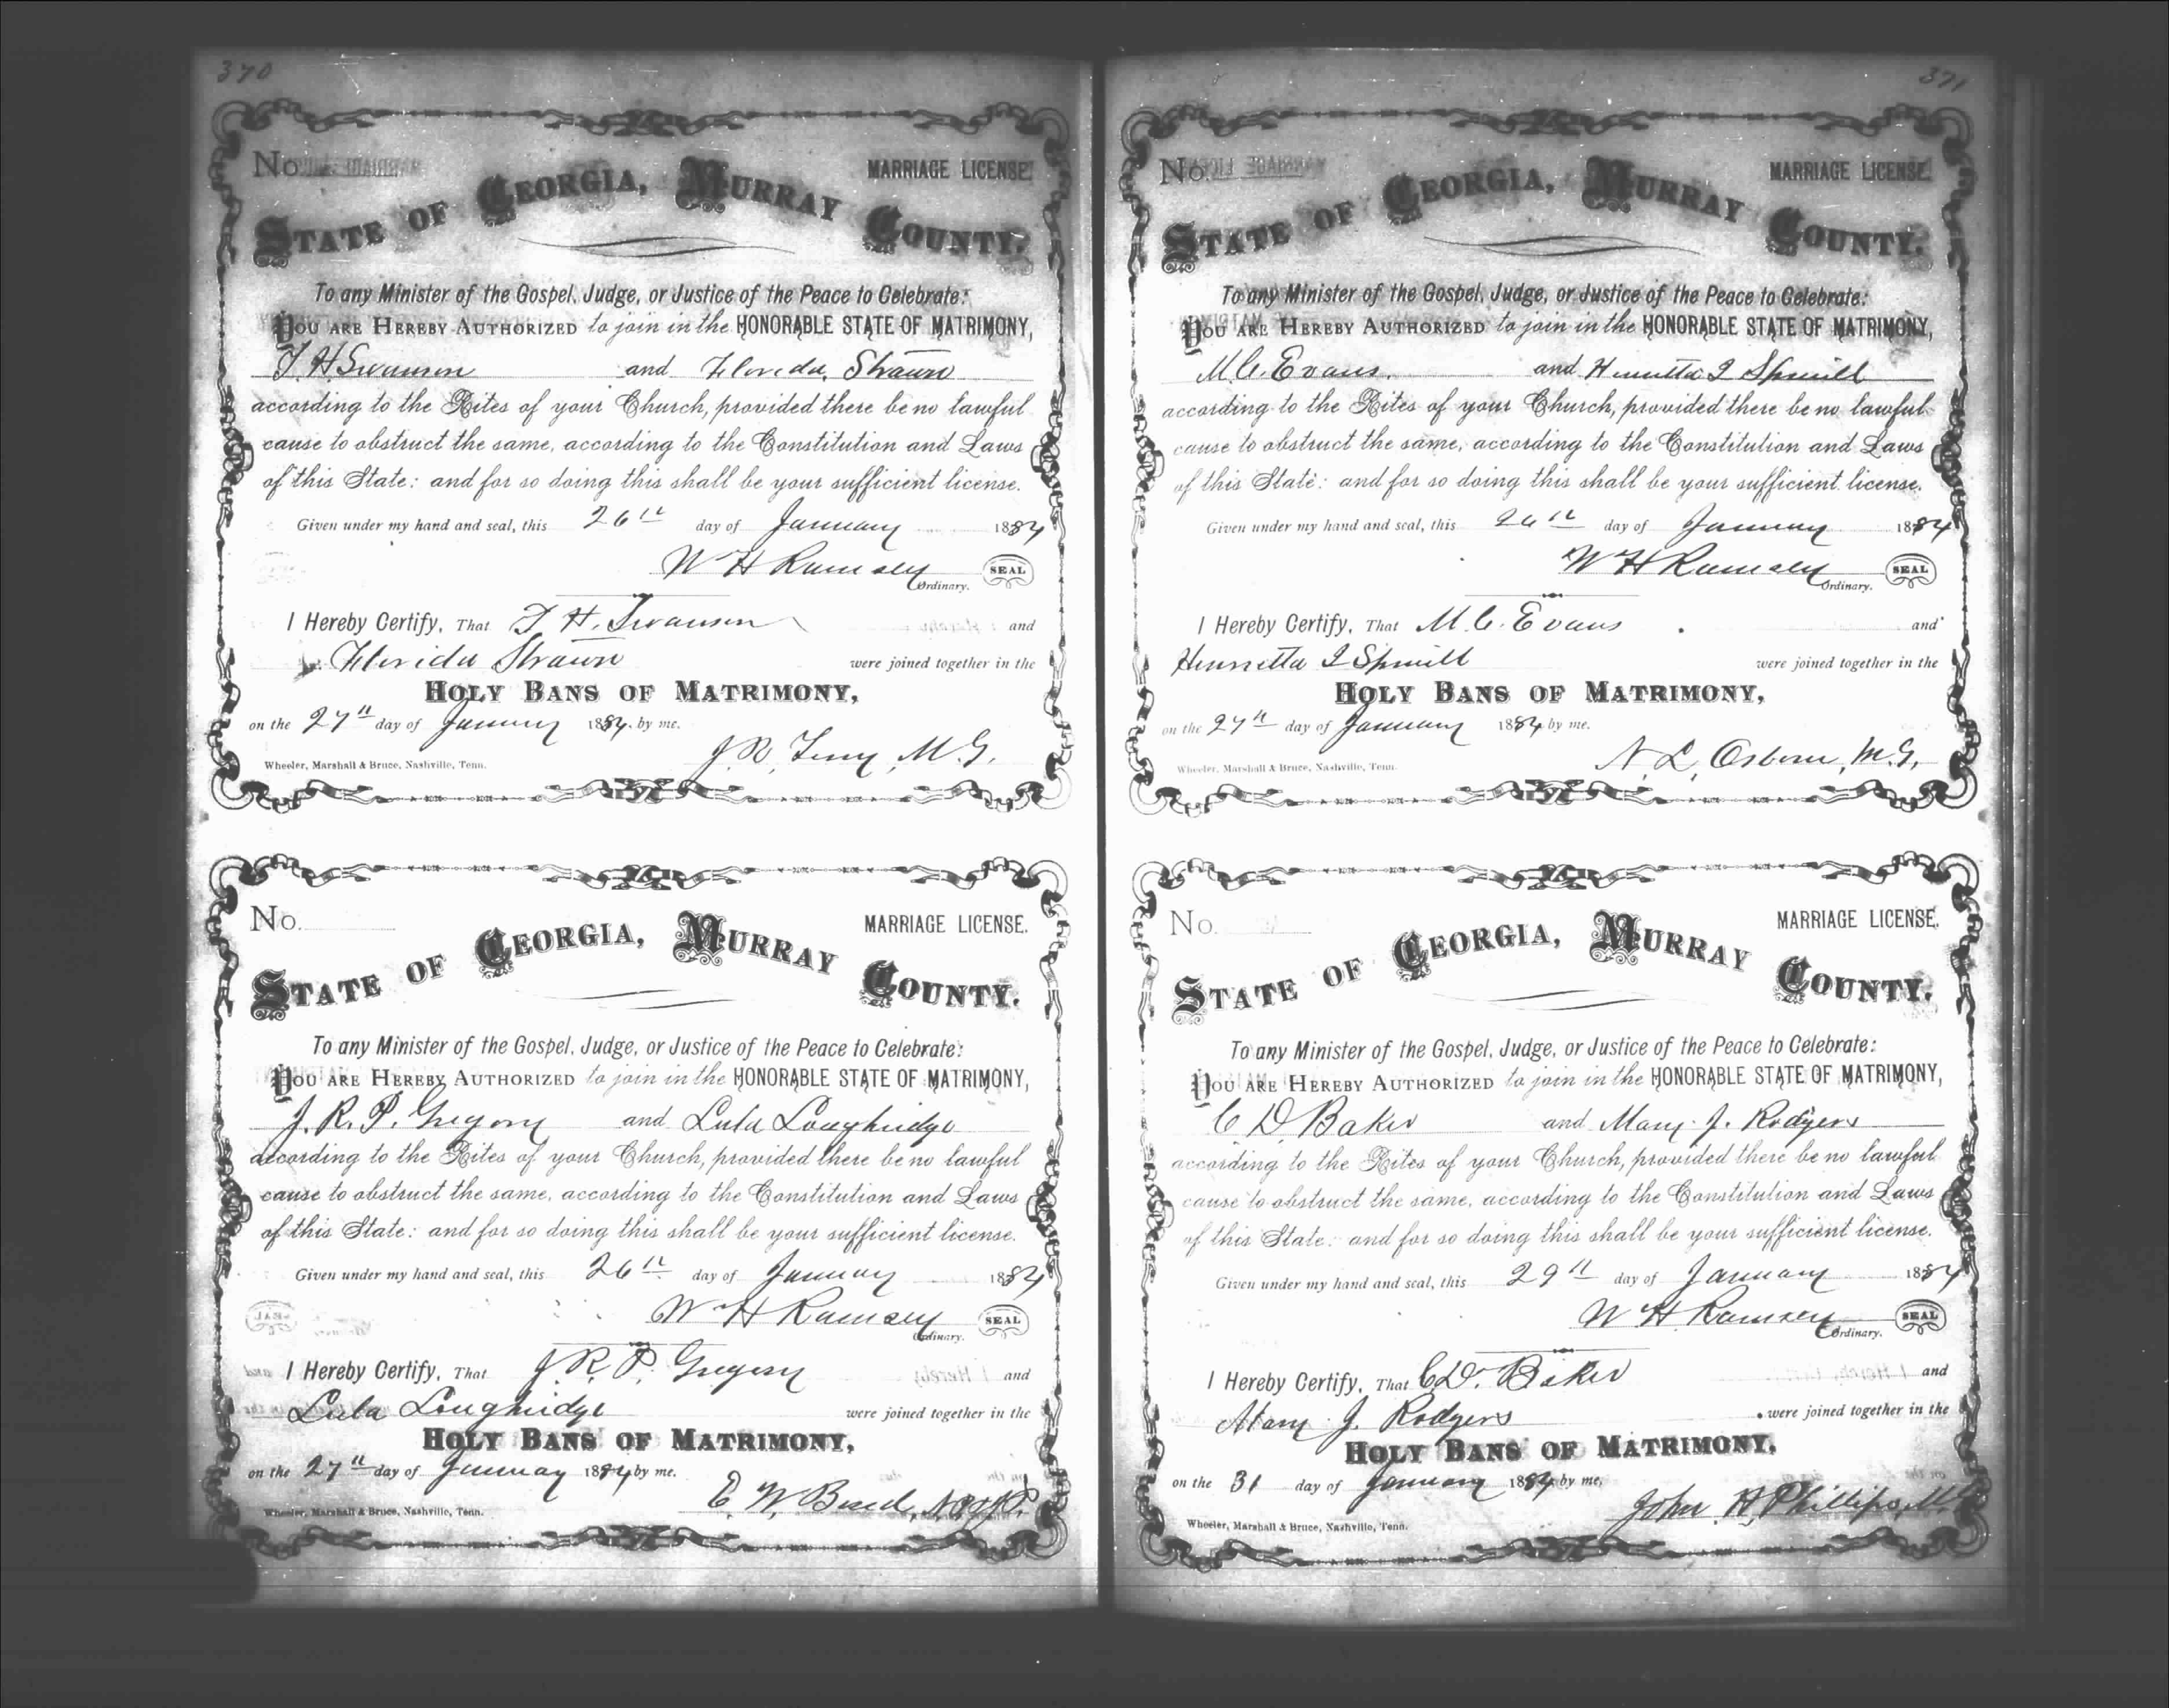 370
No. MARRIAGE LICENSE.
STATE OF GEORGIA, MURRAY COUNTY.
To any Minister of the Gospel, Judge, or Justice of the Peace to Celebrate:
YOU ARE HEREBY AUTHORIZED to join in the HONORABLE STATE OF MATRIMONY,
T. H. Swanson and Florida Strawn
according to the Rites of your Church, provided there be no lawful
cause to obstruct the same, according to the Constitution and Laws
of this State: and for so doing this shall be your sufficient license.
Given under my hand and seal, this 26th day of January 1884
W H Ramsey SEAL
Ordinary.
I Hereby Certify, That T. H. Swanson and
Florida Strawn were joined together in the
HOLY BANS OF MATRIMONY,
on the 27th day of January 1884, by me.
J. R. M.G.
Wheeler, Marshall & Bruce, Nashville, Tenn.
No. MARRIAGE LICENSE.
STATE OF GEORGIA, MURRAY COUNTY.
To any Minister of the Gospel, Judge, or Justice of the Peace to Celebrate:
YOU ARE HEREBY AUTHORIZED to join in the HONORABLE STATE OF MATRIMONY,
J. R. P. Gregory and Lula Loughridge
according to the Rites of your Church, provided there be no lawful
cause to obstruct the same, according to the Constitution and Laws
of this State: and for so doing this shall be your sufficient license.
Given under my hand and seal, this 26th day of January 1884
W H Ramsey SEAL
Ordinary.
I Hereby Certify, That J. R. P. Gregory and
Lula Loughridge were joined together in the
HOLY BANS OF MATRIMONY,
on the 27th day of January 1884 by me.
E. W. Bond,
Wheeler, Marshall & Bruce, Nashville, Tenn.
371
No. MARRIAGE LICENSE.
STATE OF GEORGIA, MURRAY COUNTY.
To any Minister of the Gospel, Judge, or Justice of the Peace to Celebrate:
YOU ARE HEREBY AUTHORIZED to join in the HONORABLE STATE OF MATRIMONY,
M. C. Evans. and Henrietta I
according to the Rites of your Church, provided there be no lawful
cause to obstruct the same, according to the Constitution and Laws
of this State: and for so doing this shall be your sufficient license.
Given under my hand and seal, this 26th day of January 1884
W H Ramsey SEAL
Ordinary.
I Hereby Certify, That M. C. Evans and
Henrietta I were joined together in the
HOLY BANS OF MATRIMONY,
on the 27th day of January 1884 by me.
N. L. Osborn, M.G.
Wheeler, Marshall & Bruce, Nashville, Tenn.
No. MARRIAGE LICENSE.
STATE OF GEORGIA, MURRAY COUNTY.
To any Minister of the Gospel, Judge, or Justice of the Peace to Celebrate:
YOU ARE HEREBY AUTHORIZED to join in the HONORABLE STATE OF MATRIMONY,
C D. Baker and Mary J. Rodgers
according to the Rites of your Church, provided there be no lawful
cause to obstruct the same, according to the Constitution and Laws
of this State: and for so doing this shall be your sufficient license.
Given under my hand and seal, this 29th day of January 1884
W H Ramsey SEAL
Ordinary.
I Hereby Certify, That C. D. Baker and
Mary J. Rodgers were joined together in the
HOLY BANS OF MATRIMONY,
on the 31 day of January 1884 by me,
John H. Phillips,
Wheeler, Marshall & Bruce, Nashville, Tenn.